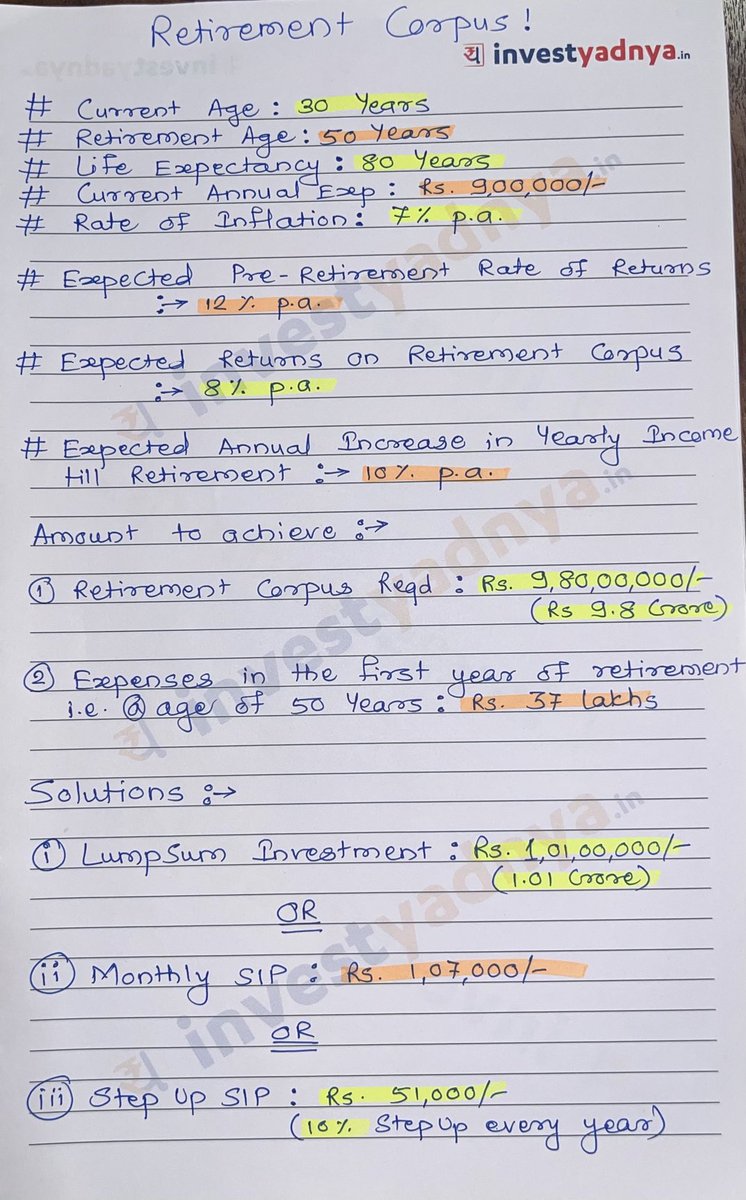 Retirement Corpus!
य investyadnya.in
# Current Age : 30 Years
# Retirement Age: 50 Years
# Life Expectancy : 80 Years
# Current Annual Exp : Rs. 900,000/-
# Rate of Inflation: 7% p.a.
# Expected Pre-Retirement Rate of Returns
:→ 12 % p.a.
# Expected Returns on Retirement Corpus
:→ 8% p.a.
# Expected Annual Increase in Yearly Income
till Retirement :→ 10% p.a.
Amount to achieve :→
① Retirement Corpus Reqd : Rs. 9,80,00,000/-
(Rs 9.8 Crore)
② Expenses in the first year of retirement
i.e. @ age of 50 Years : Rs. 37 lakhs
Solutions :→
(i) LumpSum Investment : Rs. 1,01,00,000/-
(1.01 Crore)
OR
(ii) Monthly SIP : Rs. 1,07,000/-
OR
(iii) Step Up SIP : Rs. 51,000/-
(10% Step Up every year)